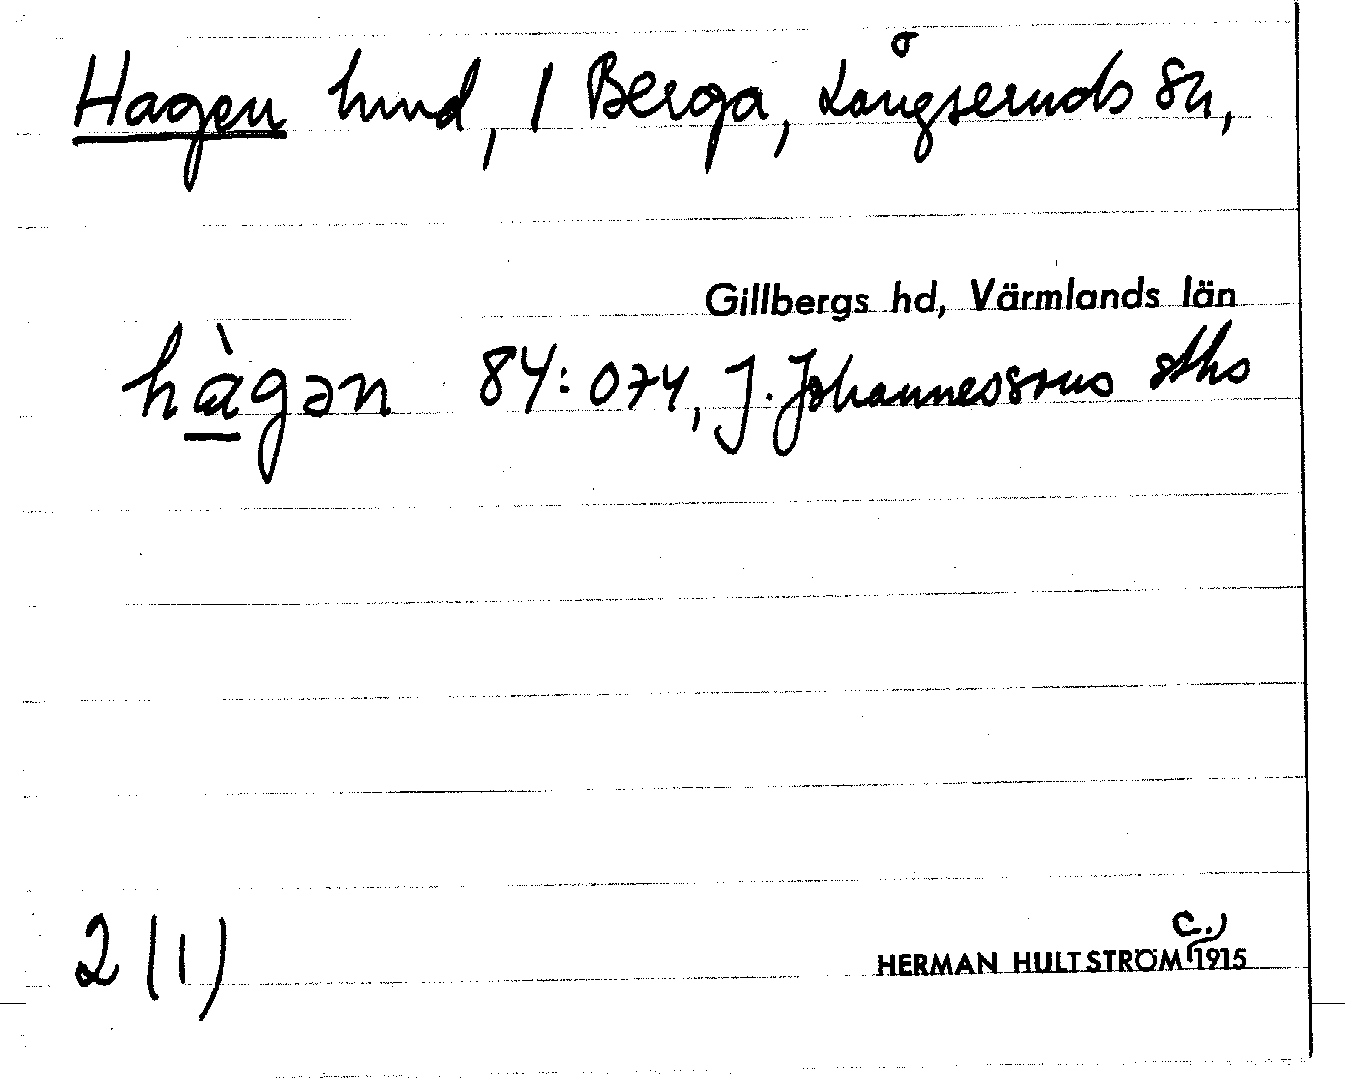 Hagen hmd, 1 Berga, Långseruds sn,
Gillbergs hd, Värmlands län
hàgən 84:074, J. Johannessons sths
2 (1)
HERMAN HULTSTRÖM c., 1915